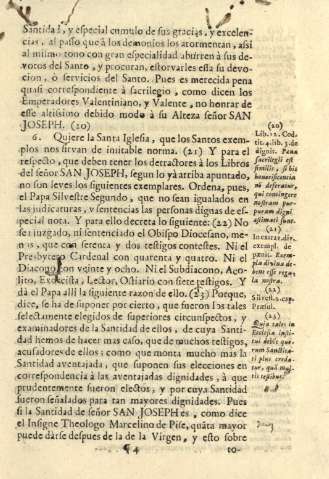 Santidad, y especial cumulo de sus gracias, y excelen-
cias, al passo que à los demonios los atormentan, assi
al mismo tono con gran especialidad aburren à sus de-
votos del Santo, y procuran, estorvarles essa su devo-
cion, ò servicios del Santo. Pues es merecida pena
quasi correspondiente à sacrilegio, como dicen los
Emperadores Valentiniano, y Valente, no honrar de
esse altissimo debido modo à su Alteza señor SAN
JOSEPH. (20)
6. Quiere la Santa Iglesia, que los Santos exem-
plos nos sirvan de imitable norma. (21) Y para el
respecto, que deben tener los detractores à los Libros
del señor SAN JOSEPH, segun lo yà arriba apuntado,
no son leves los siguientes exemplares. Ordena, pues,
el Papa Silvestre Segundo, que no sean igualados en
las judicaturas, y sentencias las personas dignas de es-
pecial nota. Y para ello decreta lo siguiente: (22) No
sea juzgado, ni sentenciado el Obispo Diocesano, me-
nos, que con setenta y dos testigos contestes. Ni el
Presbytero Cardenal con quarenta y quatro. Ni el
Diacono con veinte y ocho. Ni el Subdiacono, Aco-
lito, Exorcista, Lector, Ostiario con siete testigos. Y
dà el Papa alli la siguiente razon de ello. (23) Porque,
dice, se ha de suponer por cierto, que fueron los tales
selectamente elegidos de superiores circunspectos, y
examinadores de la Santidad de ellos, de cuya Santi-
dad hemos de hacer mas caso, que de muchos testigos,
acusadores de ellos: como que monta mucho mas la
Santidad aventajada, que suponen sus elecciones en
correspondencia à las aventajadas dignidades, à que
prudentemente fueron electos, y por cuya Santidad
fueron señalados para tan mayores dignidades. Pues
si la Santidad de señor SAN JOSEPH es, como dice
el Insigne Theologo Marcelino de Pise, quãta mayor
puede darse despues de la de la Virgen, y esto sobre
¶4 to-
(20)
Lib. 12. Cod.
tit. 4. lib. 3. de
dignit. Pœna
sacrilegii est
similis, si bis
honorificentia
nõ deferatur,
qui contingere
nostram pur-
puram digni
æstimati sunt.
(21)
exempl. de
Exempla
divina de-
bent esse regu-
la nostra.
(22)
Silvest. 2. cap.
Præsul.
(23)
Quia tales in
Ecclesia insti-
tui debẽt quo-
rum Sanctita-
ti plus creda-
tur, quã mul-
tis testibus.